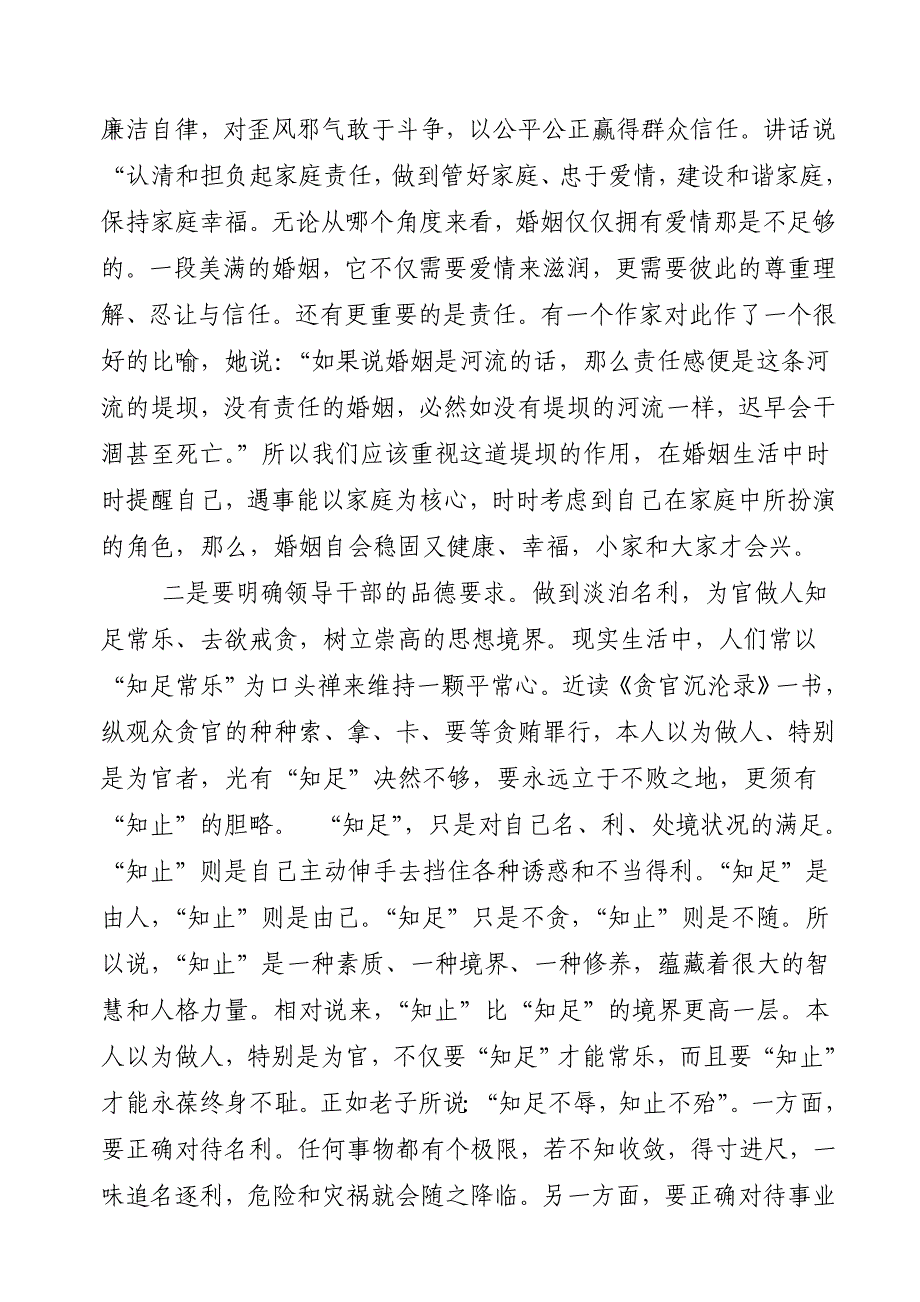 廉洁自律，对歪风邪气敢于斗争，以公平公正赢得群众信任。讲话说
“认清和担负起家庭责任，做到管好家庭、忠于爱情，建设和谐家庭，
保持家庭幸福。无论从哪个角度来看，婚姻仅仅拥有爱情那是不足够
的。一段美满的婚姻，它不仅需要爱情来滋润，更需要彼此的尊重理
解、忍让与信任。还有更重要的是责任。有一个作家对此作了一个很
好的比喻，她说：“如果说婚姻是河流的话，那么责任感便是这条河
流的堤坝，没有责任的婚姻，必然如没有堤坝的河流一样，迟早会干
涸甚至死亡。”所以我们应该重视这道堤坝的作用，在婚姻生活中时
时提醒自己，遇事能以家庭为核心，时时考虑到自己在家庭中所扮演
的角色，那么，婚姻自会稳固又健康、幸福，小家和大家才会兴。
二是要明确领导干部的品德要求。做到淡泊名利，为官做人知
足常乐、去欲戒贪，树立崇高的思想境界。现实生活中，人们常以
“知足常乐”为口头禅来维持一颗平常心。近读《贪官沉沦录》一书，
纵观众贪官的种种索、拿、卡、要等贪贿罪行，本人以为做人、特别
是为官者，光有“知足”决然不够，要永远立于不败之地，更须有
“知止”的胆略。 “知足”，只是对自己名、利、处境状况的满足。
“知止”则是自己主动伸手去挡住各种诱惑和不当得利。“知足”是
由人，“知止”则是由己。“知足”只是不贪，“知止”则是不随。所
以说，“知止”是一种素质、一种境界、一种修养，蕴藏着很大的智
慧和人格力量。相对说来，“知止”比“知足”的境界更高一层。本
人以为做人，特别是为官，不仅要“知足”才能常乐，而且要“知止”
才能永葆终身不耻。正如老子所说：“知足不辱，知止不殆”。一方面，
要正确对待名利。任何事物都有个极限，若不知收敛，得寸进尺，一
味追名逐利，危险和灾祸就会随之降临。另一方面，要正确对待事业